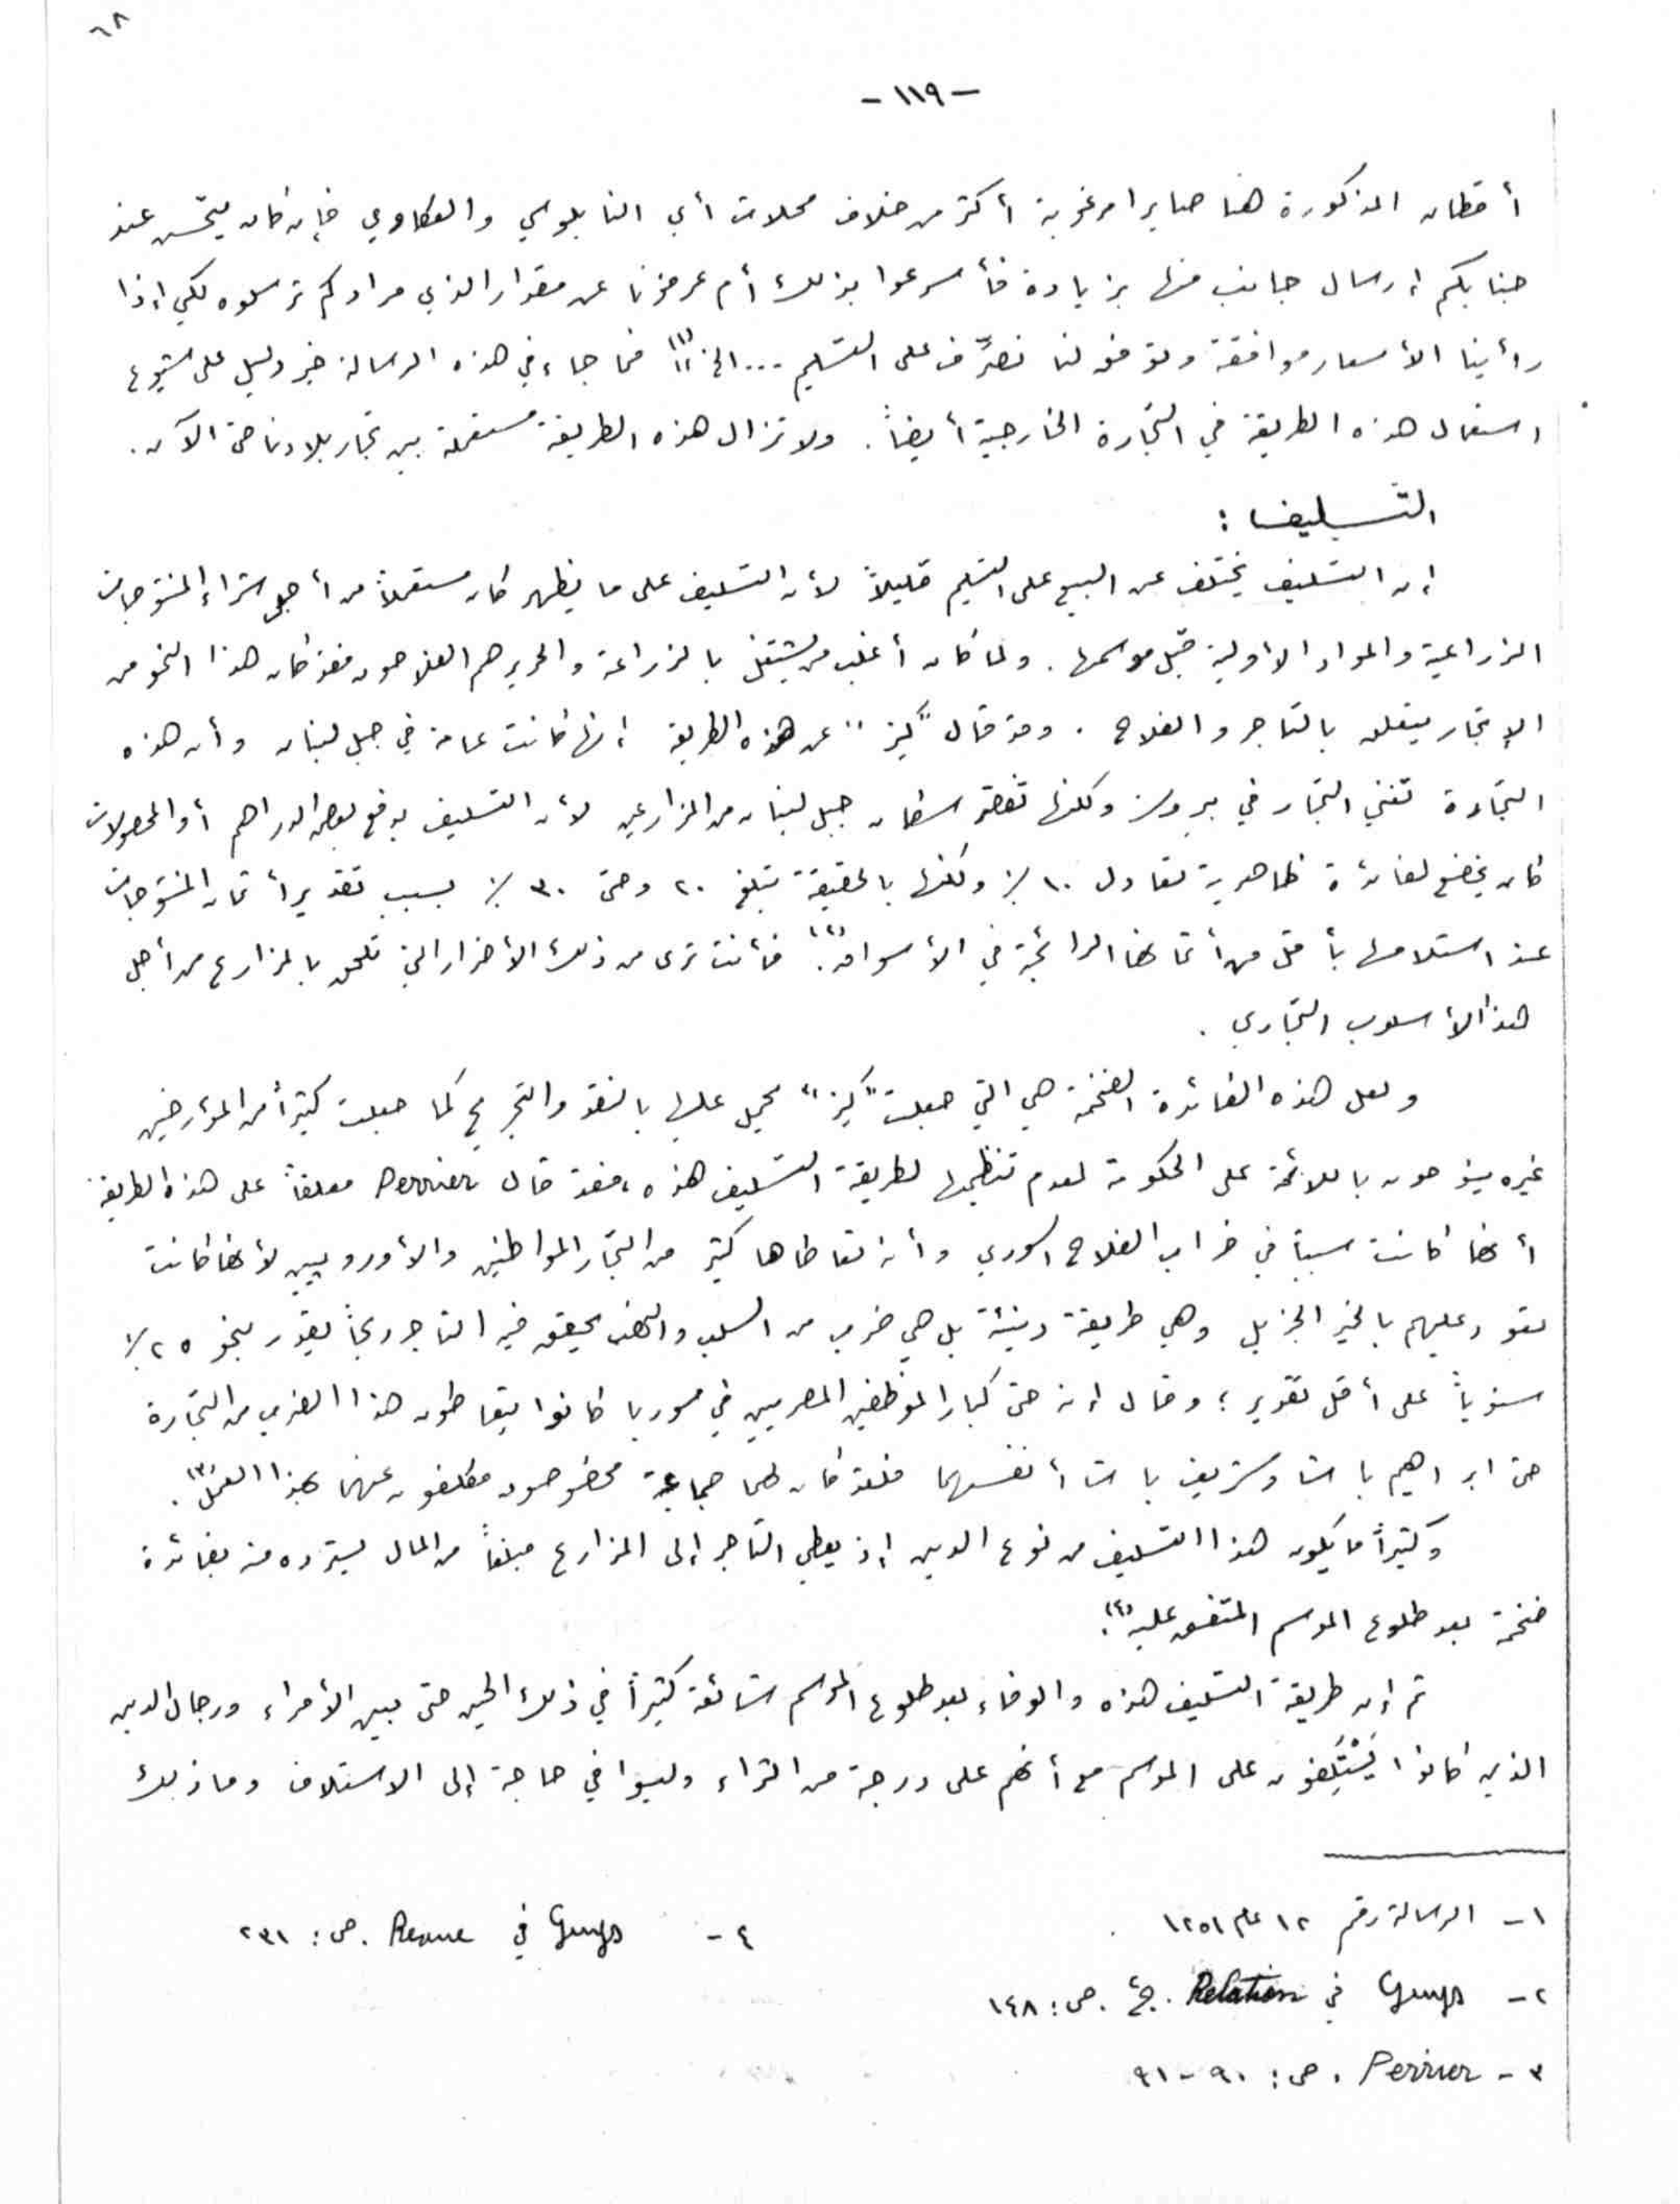 ٦٨
- ١١٩ -
أقطان المذكورة هنا صاير امرغوبة أكثر من خلاف محلات أي النابلوسي والعكاوي فإن كان يتحسن عند
جنابكم إرسال جانب منها بزيادة فأسرعوا بذلك أم عرفونا عن مقدار الذي مرادكم ترسلوه لكي إذا
رأينا الأسعار موافقة وتوفق لنا نصرّف على التسليم ... الخ"(١) فما جاء في هذه الرسالة خير دليل على شيوع
استعمال هذه الطريقة في التجارة الخارجية أيضاً. ولا تزال هذه الطريقة مستعملة بين تجار بلادنا حتى الآن.
التسليف :
إن التسليف يختلف عن البيع على التسليم قليلاً لأن التسليف على ما يظهر كان مستعملاً من أجل شراء المنتوجات
الزراعية والمواد الأولية قبل موسمها. ولما كان أغلب من يشتغل بالزراعة والحرير هم الفلاحون فقد كان هذا النحو من
الإتجار يتعلق بالتاجر والفلاح. وقد قال "كيز" عن هذه الطريقة إنها كانت عامة في جبل لبنان وأن هذه
التجارة تغني التجار في بيروت ولكنها تفقر سكان جبل لبنان من المزارعين لأن التسليف بدفع بعض الدراهم أو المحصولات
كان يخضع لفائدة ظاهرية تعادل ١٠٪ ولكنها بالحقيقة تبلغ ٢٠ وحتى ٣٠٪ بسبب تقدير أثمان المنتوجات
عند استلامها بأقل من أثمانها الرائجة في الأسواق(٢). فأنت ترى من ذلك الأضرار التي تلحق بالمزارع من أجل
هذا الأسلوب التجاري.
ولعل هذه الفائدة الضخمة هي التي جعلت "كيز" يحمل عليها بالنقد والتجريح كما جعلت كثيراً من المؤرخين
غيره ينحون باللائمة على الحكومة لعدم تنظيمها لطريقة التسليف هذه، فقد قال Perrier معلقاً على هذه الطريقة
أنها كانت سبباً في خراب الفلاح السوري وأنه تعاطاها كثير من التجار المواطنين والأوروبيين لأنها كانت
تعود عليهم بالخير الجزيل وهي طريقة دنيئة بل هي ضرب من السلب والنهب يحقق فيه التاجر ربحاً يقدر بنحو ٢٥٪
سنوياً على أقل تقدير؛ وقال إنه حتى كبار الموظفين المصريين في سوريا كانوا يتعاطون هذا الضرب من التجارة
حتى ابراهيم باشا وشريف باشا أنفسهما فلقد كان لهما جماعة مخصوصون مكلفون عنهما بهذا العمل(٣).
وكثيراً ما يكون هذا التسليف من نوع الدين إذ يعطي التاجر إلى المزارع مبلغاً من المال يسترده منه بفائدة
ضخمة بعد طلوع الموسم المتفق عليه(٤).
ثم إن طريقة التسليف هذه والوفاء بعد طلوع الموسم شائعة كثيراً في ذلك الحين حتى بين الأمراء ورجال الدين
الذين كانوا يَسْتَلِفون على الموسم مع أنهم على درجة من الثراء وليسوا في حاجة إلى الاستلاف وما ذلك
١- الرسالة رقم ١٢ عام ١٢٥١
٢- Guys في Relation. ج٤. ص: ١٤٨
٣- Perrier. ص: ٩٠-٩١
٤- Guys في Revue. ص: ٢٣١